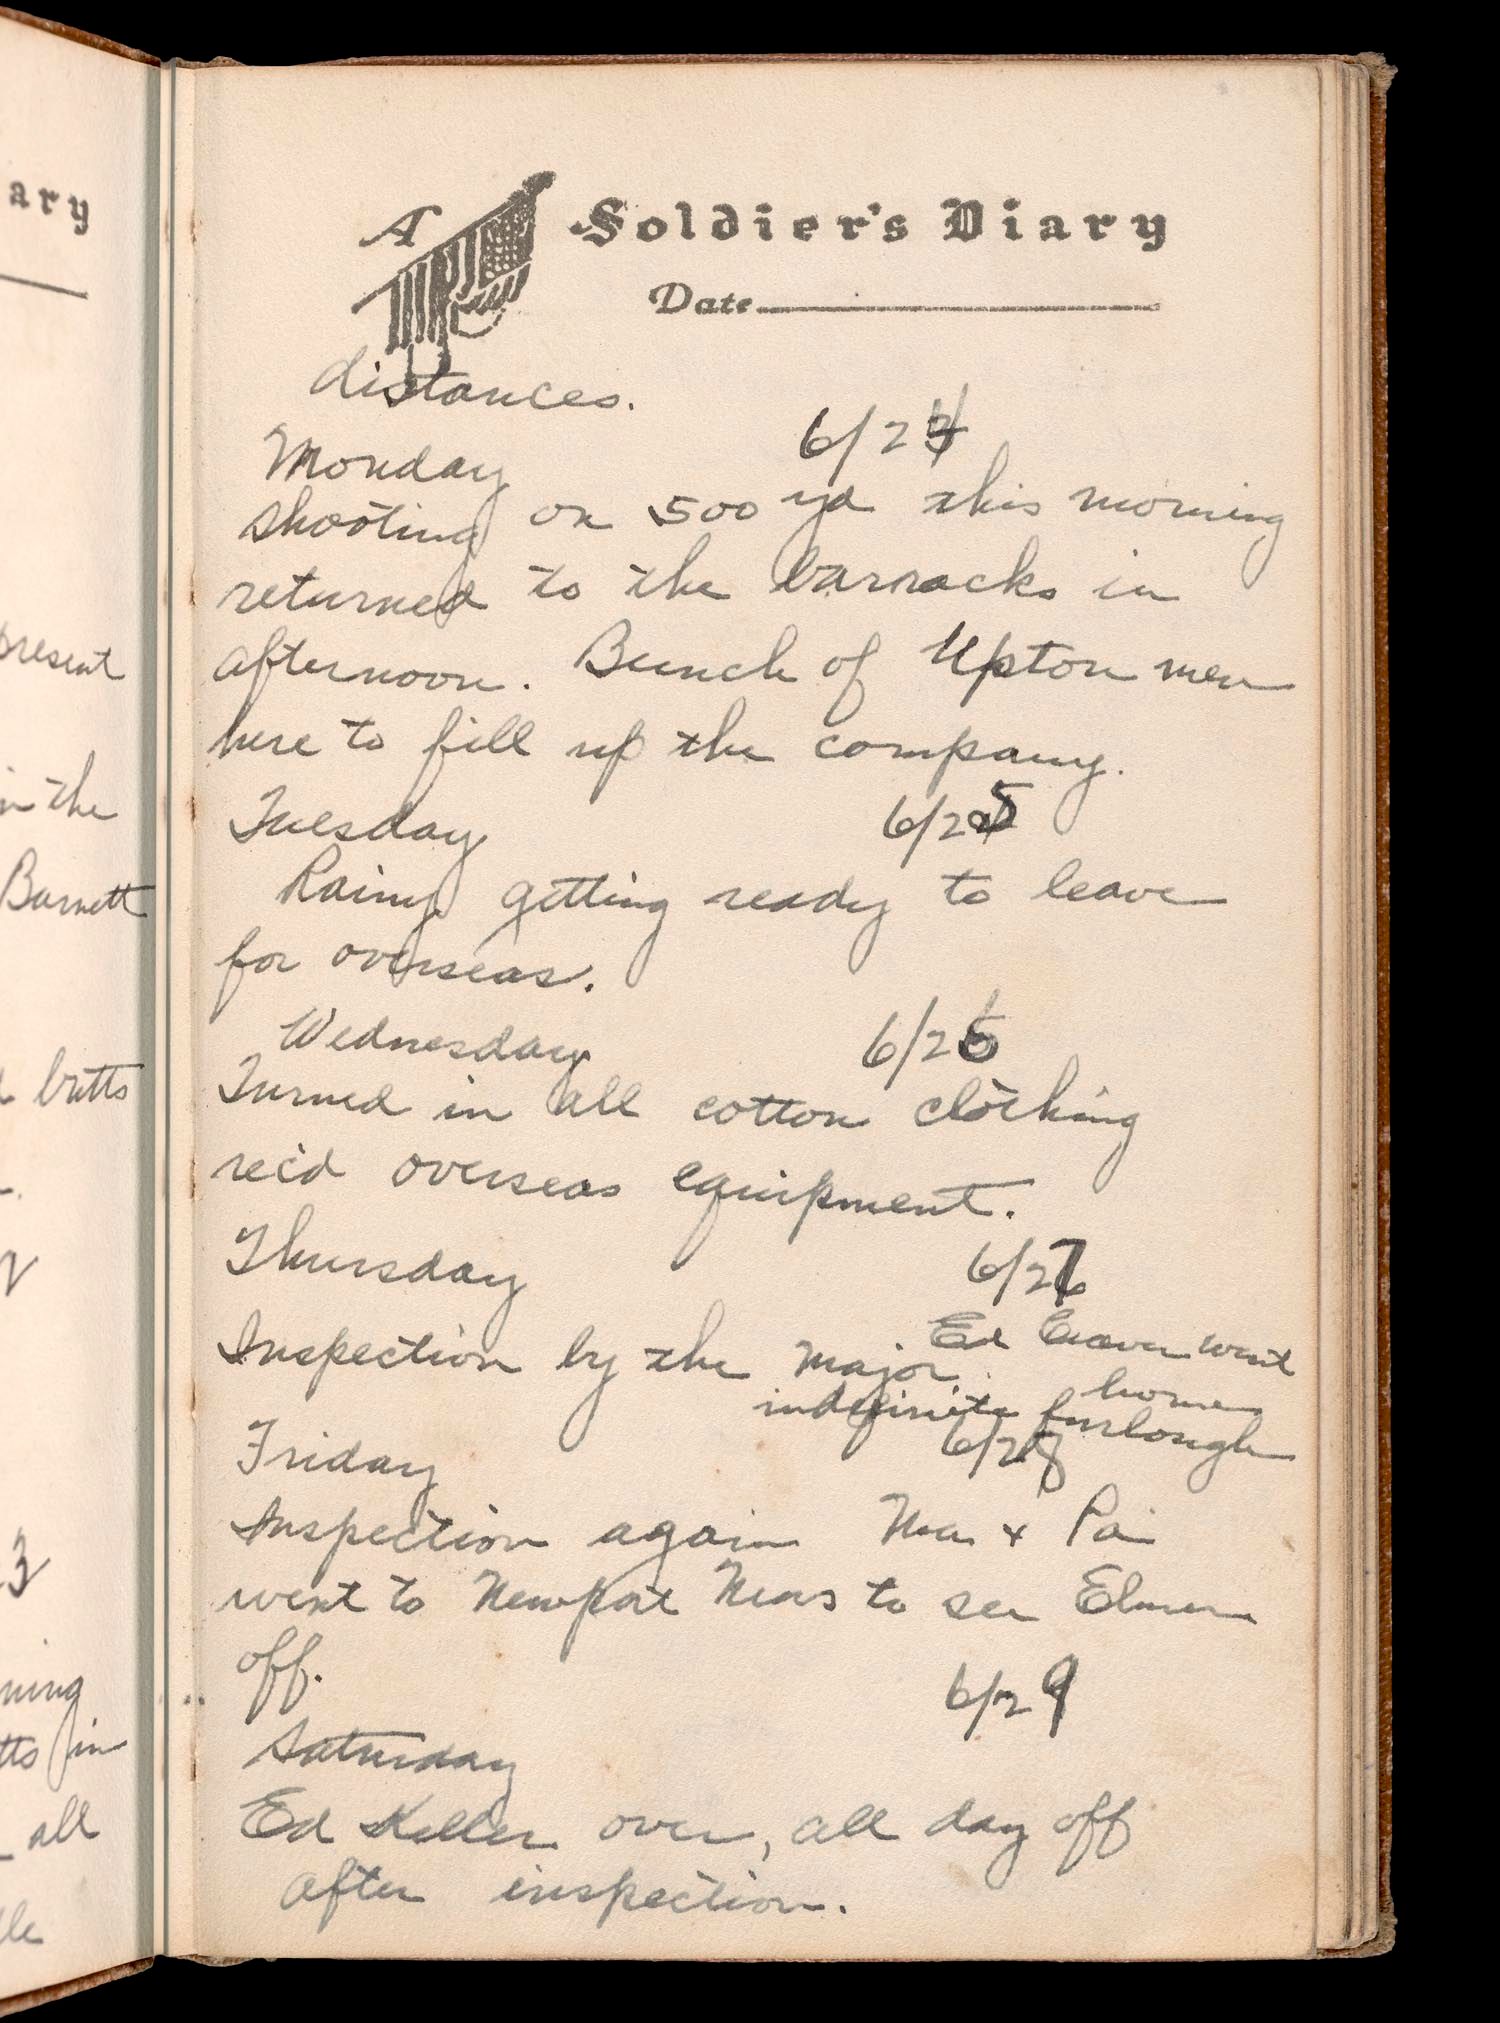 ary
present
in the
Barnett
butts
3
ning
tts in
all
A Soldier's Diary
Date
distances.
Monday 6/24
shooting on 500 yd this morning
returned to the barracks in
afternoon. Bunch of Upton men
here to fill up the company.
Tuesday 6/25
Rainy getting ready to leave
for overseas.
Wednesday 6/26
Turned in all cotton clothing
rec'd overseas equipment.
Thursday 6/27
Inspection by the Major. Ed went
home
indefinite furlough
Friday 6/28
Inspection again Ma + Pa
went to Newport News to see Elmer
off.
6/29
Saturday
Ed Keller over, all day off
after inspection.